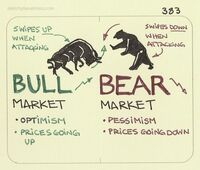 383
SWIPES UP
WHEN
ATTACKING
SWIPES DOWN
WHEN
ATTACKING
BULL
MARKET
• OPTIMISM
• PRICES GOING
UP
BEAR
MARKET
• PESSIMISM
• PRICES GOING DOWN